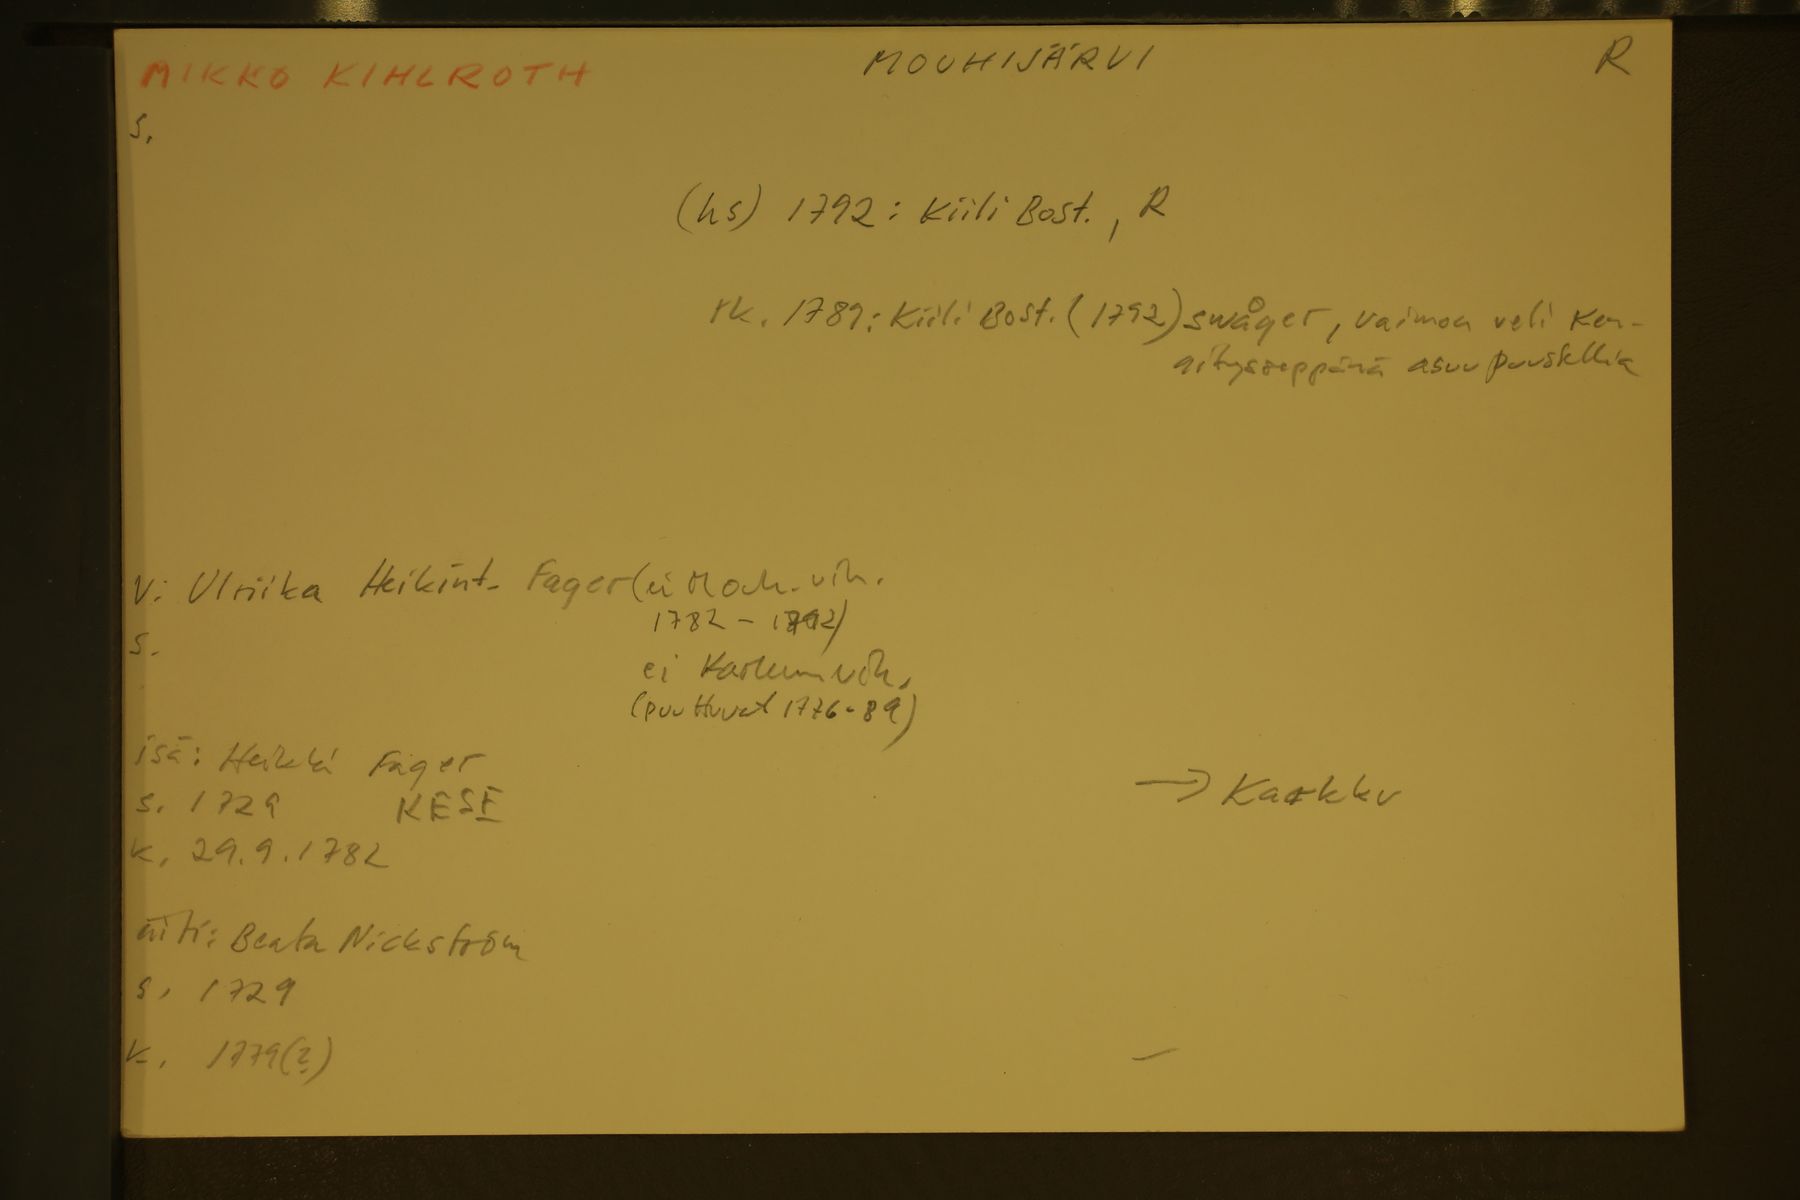 MIKKO KIHLROTH MOUHIJÄRVI R
s.
(hs) 1792: Kiili Bost., R
rk. 1789: Kiili Bost. (1792) swåger, vaimon veli Ken-
gitysseppänä asuu puustellia
V: Ulriika Heikint. Fager (ei Mouh. vih.
1782 - 1792)
s.
ei Karkun vih.
(puuttuvat 1776-89)
isä: Heikki Fager
s. 1729 KESE
k. 29.9.1782
→ Karkku
äiti: Beata Nickström
s. 1729
k. 1779(?)